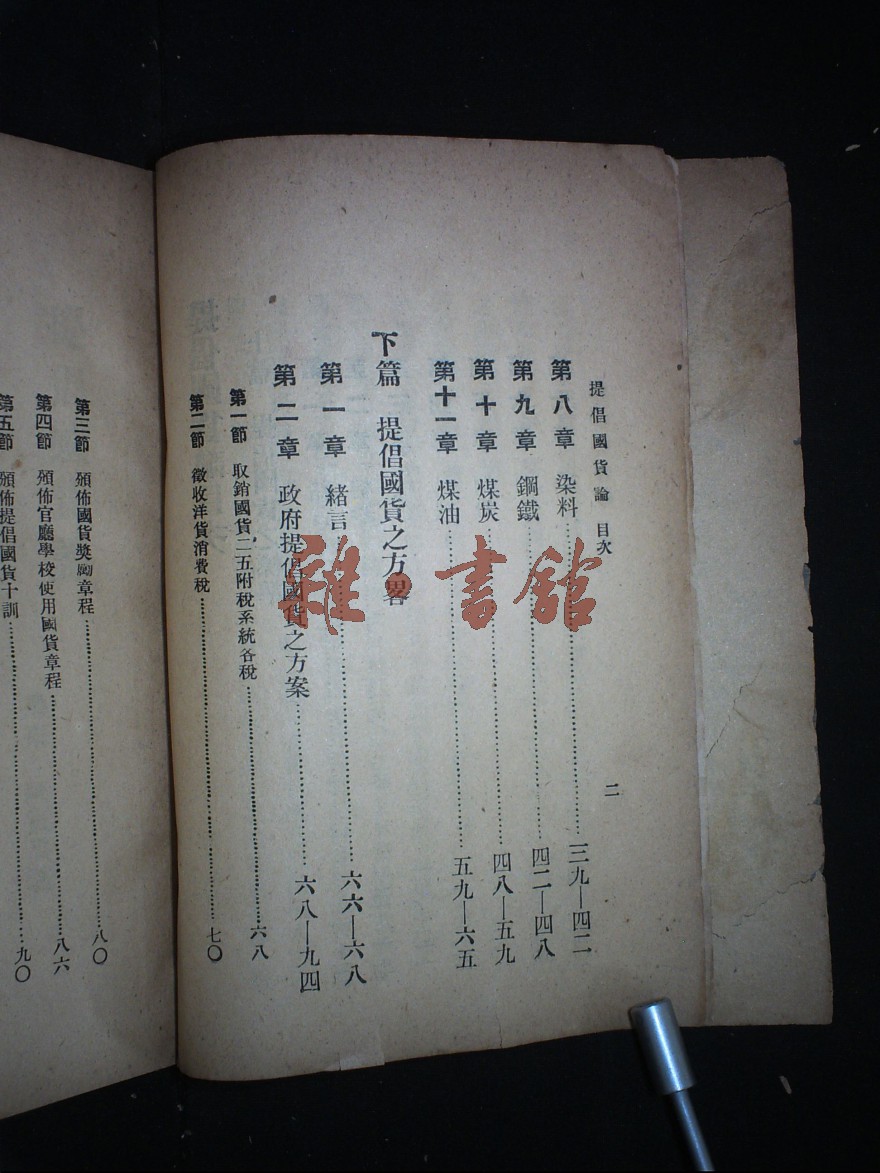 提倡國貨論 目次 二
第八章 染料 三九—四二
第九章 鋼鐵 四二—四八
第十章 煤炭 四八—五九
第十一章 煤油 五九—六五
下篇 提倡國貨之方畧
第一章 緒言 六六—六八
第二章 政府提倡國貨之方案 六八—九四
第一節 取銷國貨二五附稅系統各稅 六八
第二節 徵收洋貨消費稅 七〇
第三節 頒佈國貨獎勵章程 八〇
第四節 頒佈官廳學校使用國貨章程 八六
第五節 頒佈提倡國貨十訓 九〇
雜書館